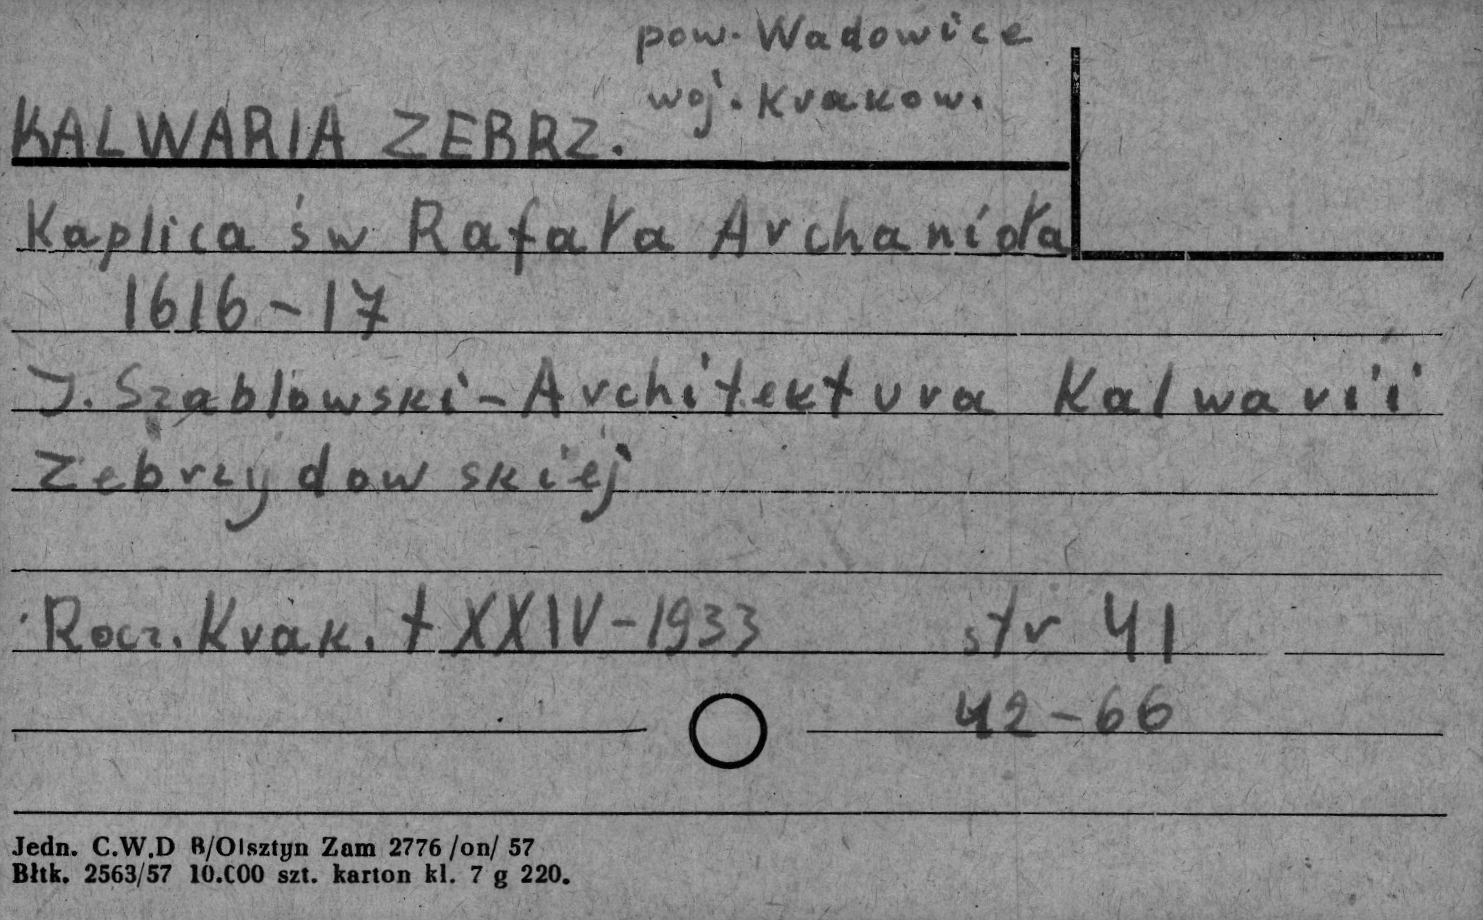 pow. Wadowice
woj. Krakow.
KALWARIA ZEBRZ.
Kaplica św Rafała Archanioła
1616-17
J. Szablowski - Architektura Kalwarii
Zebrzydowskiej
Rocz. Krak. t XXIV-1933 str 41
42-66
Jedn. C.W.D B/Olsztyn Zam 2776 /on/ 57
Błtk. 2563/57 10.000 szt. karton kl. 7 g 220.